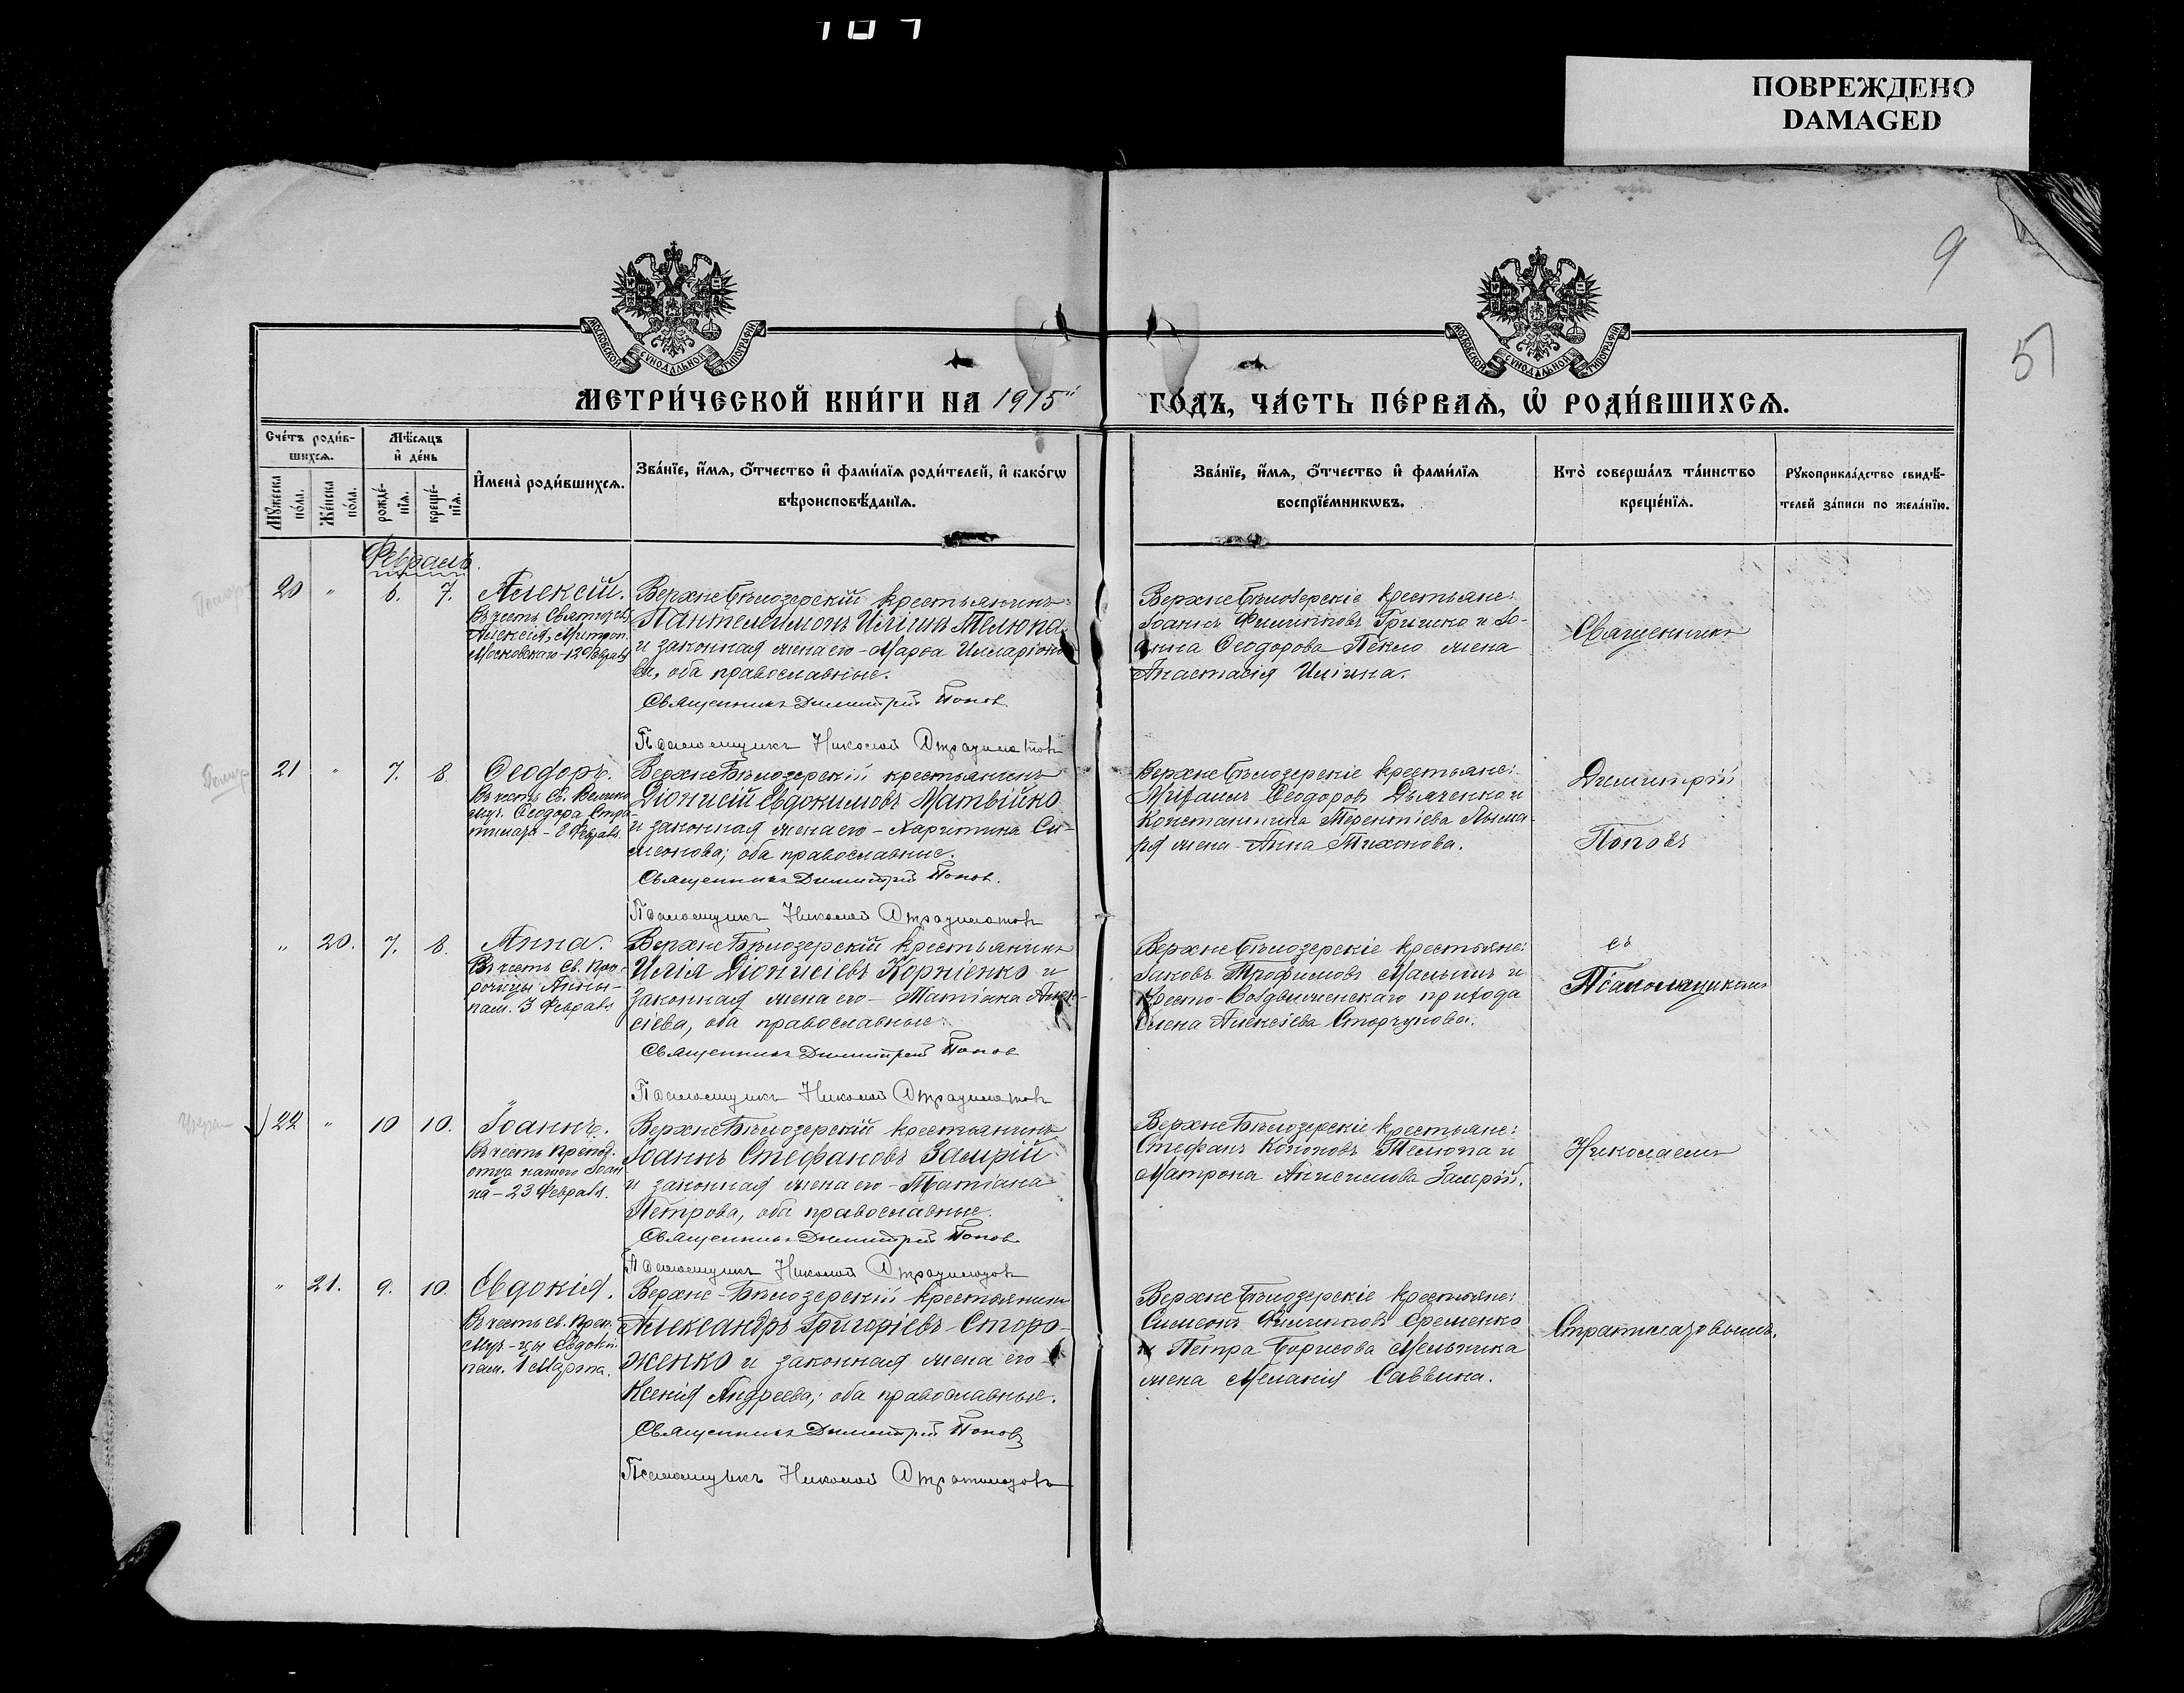 ПОВРЕЖДЕНО
DAMAGED
9
51
МОСКОВСКОЙ СѴНОДАЛЬНОЙ ТИПОГРАФІИ
МОСКОВСКОЙ СѴНОДАЛЬНОЙ ТИПОГРАФІИ
МЕТРИ́ЧЕСКОЙ КНИ́ГИ НА 1915
ГО́ДЪ, ЧА́СТЬ ПЕ́РВАѦ, Ѡ҆ РОДИ́ВШИХСѦ.
Сче́тъ роди́в-
шихсѧ.
Мѣ́сѧцъ
и҆ де́нь
Мꙋ́жеска
по́ла.
Же́нска
по́ла.
рожде́-
нїѧ.
креще́-
нїѧ.
И҆мена̀ роди́вшихсѧ.
Зва́нїе, и҆́мѧ, ѻ҆́тчество и҆ фами́лїѧ роди́телей, и҆ како́гѡ
вѣроисповѣ́данїѧ.
Зва́нїе, и҆́мѧ, ѻ҆́тчество и҆ фами́лїѧ
воспрїе́мникѡвъ.
Кто̀ соверша́лъ та́инство
креще́нїѧ.
Рꙋкоприкла́дство свидѣ́-
телей за́писи по жела́нїю.
Февраль.
20 " 6. 7. Алексій.
Въ честь Святителя
Алексія, Митроп.
Московскаго - 12 Февраля
ВерхнеБѣлозерскій крестьянинъ
Пантелеимонъ Иліинъ Телюпа
и законная жена его - Марѳа Иларіоно-
ва, оба православные.
Священникъ Димитрій Попов.
Псаломщикъ Николай Стратилатовъ
ВерхнеБѣлозерскіе крестьяне:
Іоаннъ Филипповъ Гришко и Іо-
анна Ѳеодорова Пекло жена
Анастасія Иліина.
Священникъ
21 " 7. 8. Ѳеодоръ.
Въ честь Св. Велико
муч. Ѳеодора Стра-
тилата - 8 Февраля.
ВерхнеБѣлозерскій крестьянинъ
Діонисій Евдокимовъ Матвійко
и законная жена его - Харитина Си-
меонова; оба православные.
Священникъ Димитрій Попов.
Псаломщикъ Николай Стратилатовъ
ВерхнеБѣлозерскіе крестьяне:
Михаилъ Ѳеодоровъ Дьяченко и
Константина Терентіева Лыма-
ря жена - Анна Тихонова.
Димитрій
Поповъ
" 20. 7. 8. Анна.
Въ честь Св. Про-
рочицы Анны -
пам. 3 Февраля
ВерхнеБѣлозерскій крестьянинъ
Илія Діонисіевъ Корніенко и
законная жена его - Татіана Алек-
сіева, оба православные.
Священникъ Димитрій Попов
Псаломщикъ Николай Стратилатовъ
ВерхнеБѣлозерскіе крестьяне:
Іаковъ Трофимовъ Малышъ и
Кресто-Воздвиженскаго прихода
Елена Алексіева Сторчунова.
съ
Псаломщикомъ
22 " 10 10. Іоаннъ.
Въ честь Препод.
отца нашего Іоан-
на - 23 Февраля.
ВерхнеБѣлозерскій крестьянинъ
Іоаннъ Стефановъ Замрій
и законная жена его - Татіана
Петрова, оба православные.
Священникъ Димитрій Попов
Псаломщикъ Николай Стратилатовъ
ВерхнеБѣлозерскіе крестьяне:
Стефанъ Кононовъ Телюпа и
Матрона Анисимова Замрій.
Николаемъ
" 21. 9. 10. Евдокія.
Въ честь Св. Преп.
муч-цы Евдокіи
пам. 1 Марта.
Верхне-Бѣлозерскій крестьянинъ
Александръ Григоріевъ Сторо-
женко и законная жена его -
Ксенія Андреева; оба православные.
Священникъ Димитрій Поповъ
Псаломщикъ Николай Стратилатовъ
ВерхнеБѣлозерскіе крестьяне:
Симеонъ Филипповъ Еременко
и Петра Борисова Мельника
жена Меланія Саввина.
Стратилатовымъ.